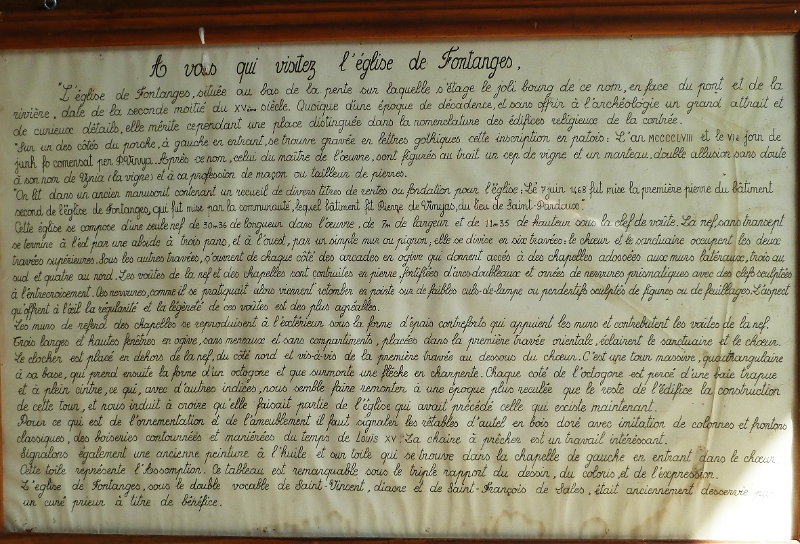 A vous qui visitez l'église de Fontanges,
"L'église de Fontanges, située au bas de la pente sur laquelle s'étage le joli bourg de ce nom, en face du pont et de la
rivière, date de la seconde moitié du XVème siècle. Quoique d'une époque de décadence, et sans offrir à l'archéologie un grand attrait et
de curieux détails, elle mérite cependant une place distinguée dans la nomenclature des édifices religieux de la contrée.
"Sur un des côtés du porche, à gauche en entrant, se trouve gravée en lettres gothiques cette inscription en patois: L'an MCCCCLVIII et le VIe jorn de
junh fo comensat per P Vinya. Après ce nom, celui du maître de l'œuvre, sont figurés au trait un cep de vigne et un marteau, double allusion sans doute
à son nom de Vinia (la vigne) et à sa profession de maçon ou tailleur de pierres.
"On lit dans un ancien manuscrit contenant un recueil de divers titres de rentes ou fondation pour l'église: Le 7 juin 1468 fut mise la première pierre du bâtiment
second de l'église de Fontanges, qui fut mise par la communauté, lequel bâtiment fit Pierre de Vinyas, du lieu de Saint-
Cette église se compose d'une seule nef de 30m36 de longueur dans l'œuvre, de 7m de largeur et de 11m35 de hauteur sous la clef de voûte. La nef, sans transept
se termine à l'est par une abside à trois pans, et à l'ouest, par un simple mur ou pignon, elle se divise en six travées: le chœur et le sanctuaire occupent les deux
travées supérieures. Sous les autres travées, s'ouvrent de chaque côté des arcades en ogive qui donnent accès à des chapelles adossées aux murs latéraux, trois au
sud et quatre au nord. Les voûtes de la nef et des chapelles sont contruites en pierre, fortifiées d'arcs-doubleaux et ornées de nervures prismatiques avec des clefs sculptées
à l'entrecroisement. Ces nervures, comme il se pratiquait alors viennent retomber en pointe sur de faibles culs-de-lampe ou pendentifs sculptés de figures ou de feuillages. L'aspect
qu'offrent à l'œil la régularité et la légèreté de ces voûtes est des plus agréables.
Les murs de refend des chapelles se reproduisent à l'extérieur sous la forme d'épais contreforts qui appuient les murs et contrebutent les voûtes de la nef.
Trois larges et hautes fenêtres en ogive, sans meneaux et sans compartiments, placées dans la première travée orientale, éclairent le sanctuaire et le chœur.
Le clocher est placé en dehors de la nef, du côté nord et vis-à-vis de la première travée au dessous du chœur. C'est une tour massive, quadrangulaire
à sa base, qui prend ensuite la forme d'un octogone et que surmonte une flèche en charpente. Chaque côté de l'octogone est percé d'une baie trapue
et à plein cintre, ce qui, avec d'autres indices, nous semble faire remonter à une époque plus reculée que le reste de l'édifice la construction
de cette tour, et nous induit à croire qu'elle faisait partie de l'église qui avait précédé celle qui existe maintenant.
Pour ce qui est de l'ornementation et de l'ameublement il faut signaler les rétables d'autel en bois doré avec imitation de colonnes et frontons
classiques, des boiseries contournées et maniérées du temps de Louis XV: La chaire à prêcher est un travail intéressant.
Signalons également une ancienne peinture à l'huile et sur toile qui se trouve dans la chapelle de gauche en entrant dans le chœur.
Cette toile représente l'Assomption. Ce tableau est remarquable sous le triple rapport du dessin, du coloris, et de l'expression.
L'église de Fontanges, sous le double vocable de Saint-Vincent, diacre et de Saint-François de Sales, était anciennement desservie par
un curé prieur à titre de bénéfice.